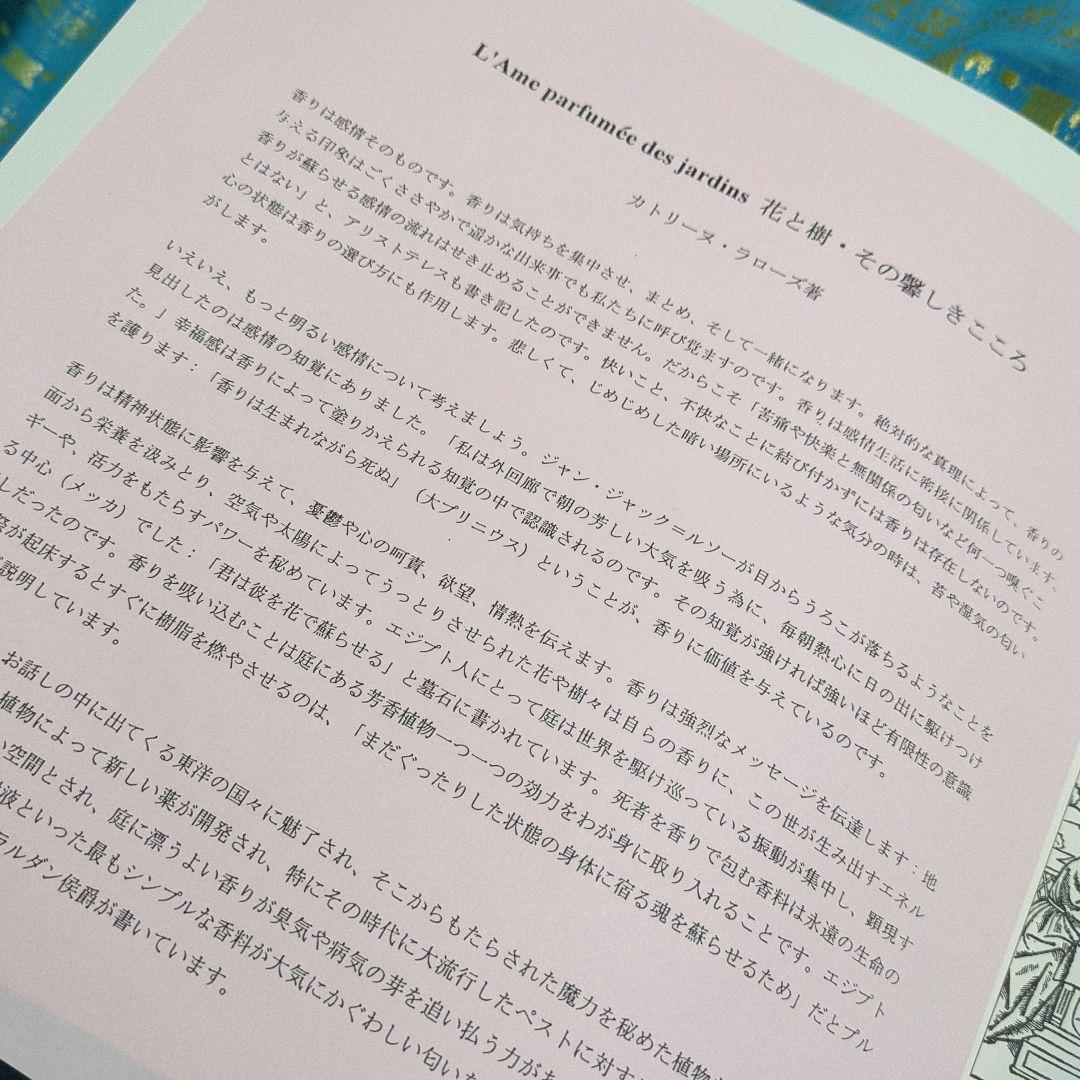 L'Ame parfumée des jardins 花と樹・その馨しきこころ
カトリーヌ・ラローズ著
香りは感情そのものです。香りは気持ちを集中させ、まとめ、そして一緒になります。絶対的な真理によって、香りの
与える印象はごくささやかで遥かな出来事でも私たちに呼び覚ますのです。香りは感情生活に密接に関係しています。
香りが蘇らせる感情の流れはせき止めることができません。だからこそ「苦痛や快楽と無関係の匂いなど何一つ嗅ぐこ
とはない」と、アリストテレスも書き記したのです。快いこと、不快なことに結び付かずには香りは存在しないのです。
心の状態は香りの選び方にも作用します。悲しくて、じめじめした暗い場所にいるような気分の時は、苔や湿気の匂い
がします。
いえいえ、もっと明るい感情について考えましょう。ジャン・ジャック＝ルソーが目からうろこが落ちるようなことを
見出したのは感情の知覚にありました。「私は外回廊で朝の芳しい大気を吸う為に、毎朝熱心に日の出に駆けつけ
た。」幸福感は香りによって塗りかえられる知覚の中で認識されるのです。その知覚が強ければ強いほど有限性の意識
を護ります：「香りは生まれながら死ぬ」（大プリニウス）ということが、香りに価値を与えているのです。
香りは精神状態に影響を与えて、憂鬱や心の呵責、欲望、情熱を伝えます。香りは強烈なメッセージを伝達します：地
面から栄養を汲みとり、空気や太陽によってうっとりさせられた花や樹々は自らの香りに、この世が生み出すエネル
ギーや、活力をもたらすパワーを秘めています。エジプト人にとって庭は世界を駆け巡っている振動が集中し、顕現す
る中心（メッカ）でした：「君は彼を花で蘇らせる」と墓石に書かれています。死者を香りで包む香料は永遠の生命の
しだったのです。香りを吸い込むことは庭にある芳香植物一つ一つの効力をわが身に取り入れることです。エジプト
が起床するとすぐに樹脂を燃やさせるのは、「まだぐったりした状態の身体に宿る魂を蘇らせるため」だとプル
説明しています。
お話しの中に出てくる東洋の国々に魅了され、そこからもたらされた魔力を秘めた植物
植物によって新しい薬が開発され、特にその時代に大流行したペストに対す
い空間とされ、庭に漂うよい香りが臭気や病気の芽を追い払う力があ
液といった最もシンプルな香料が大気にかぐわしい匂いた
ラルダン侯爵が書いています。